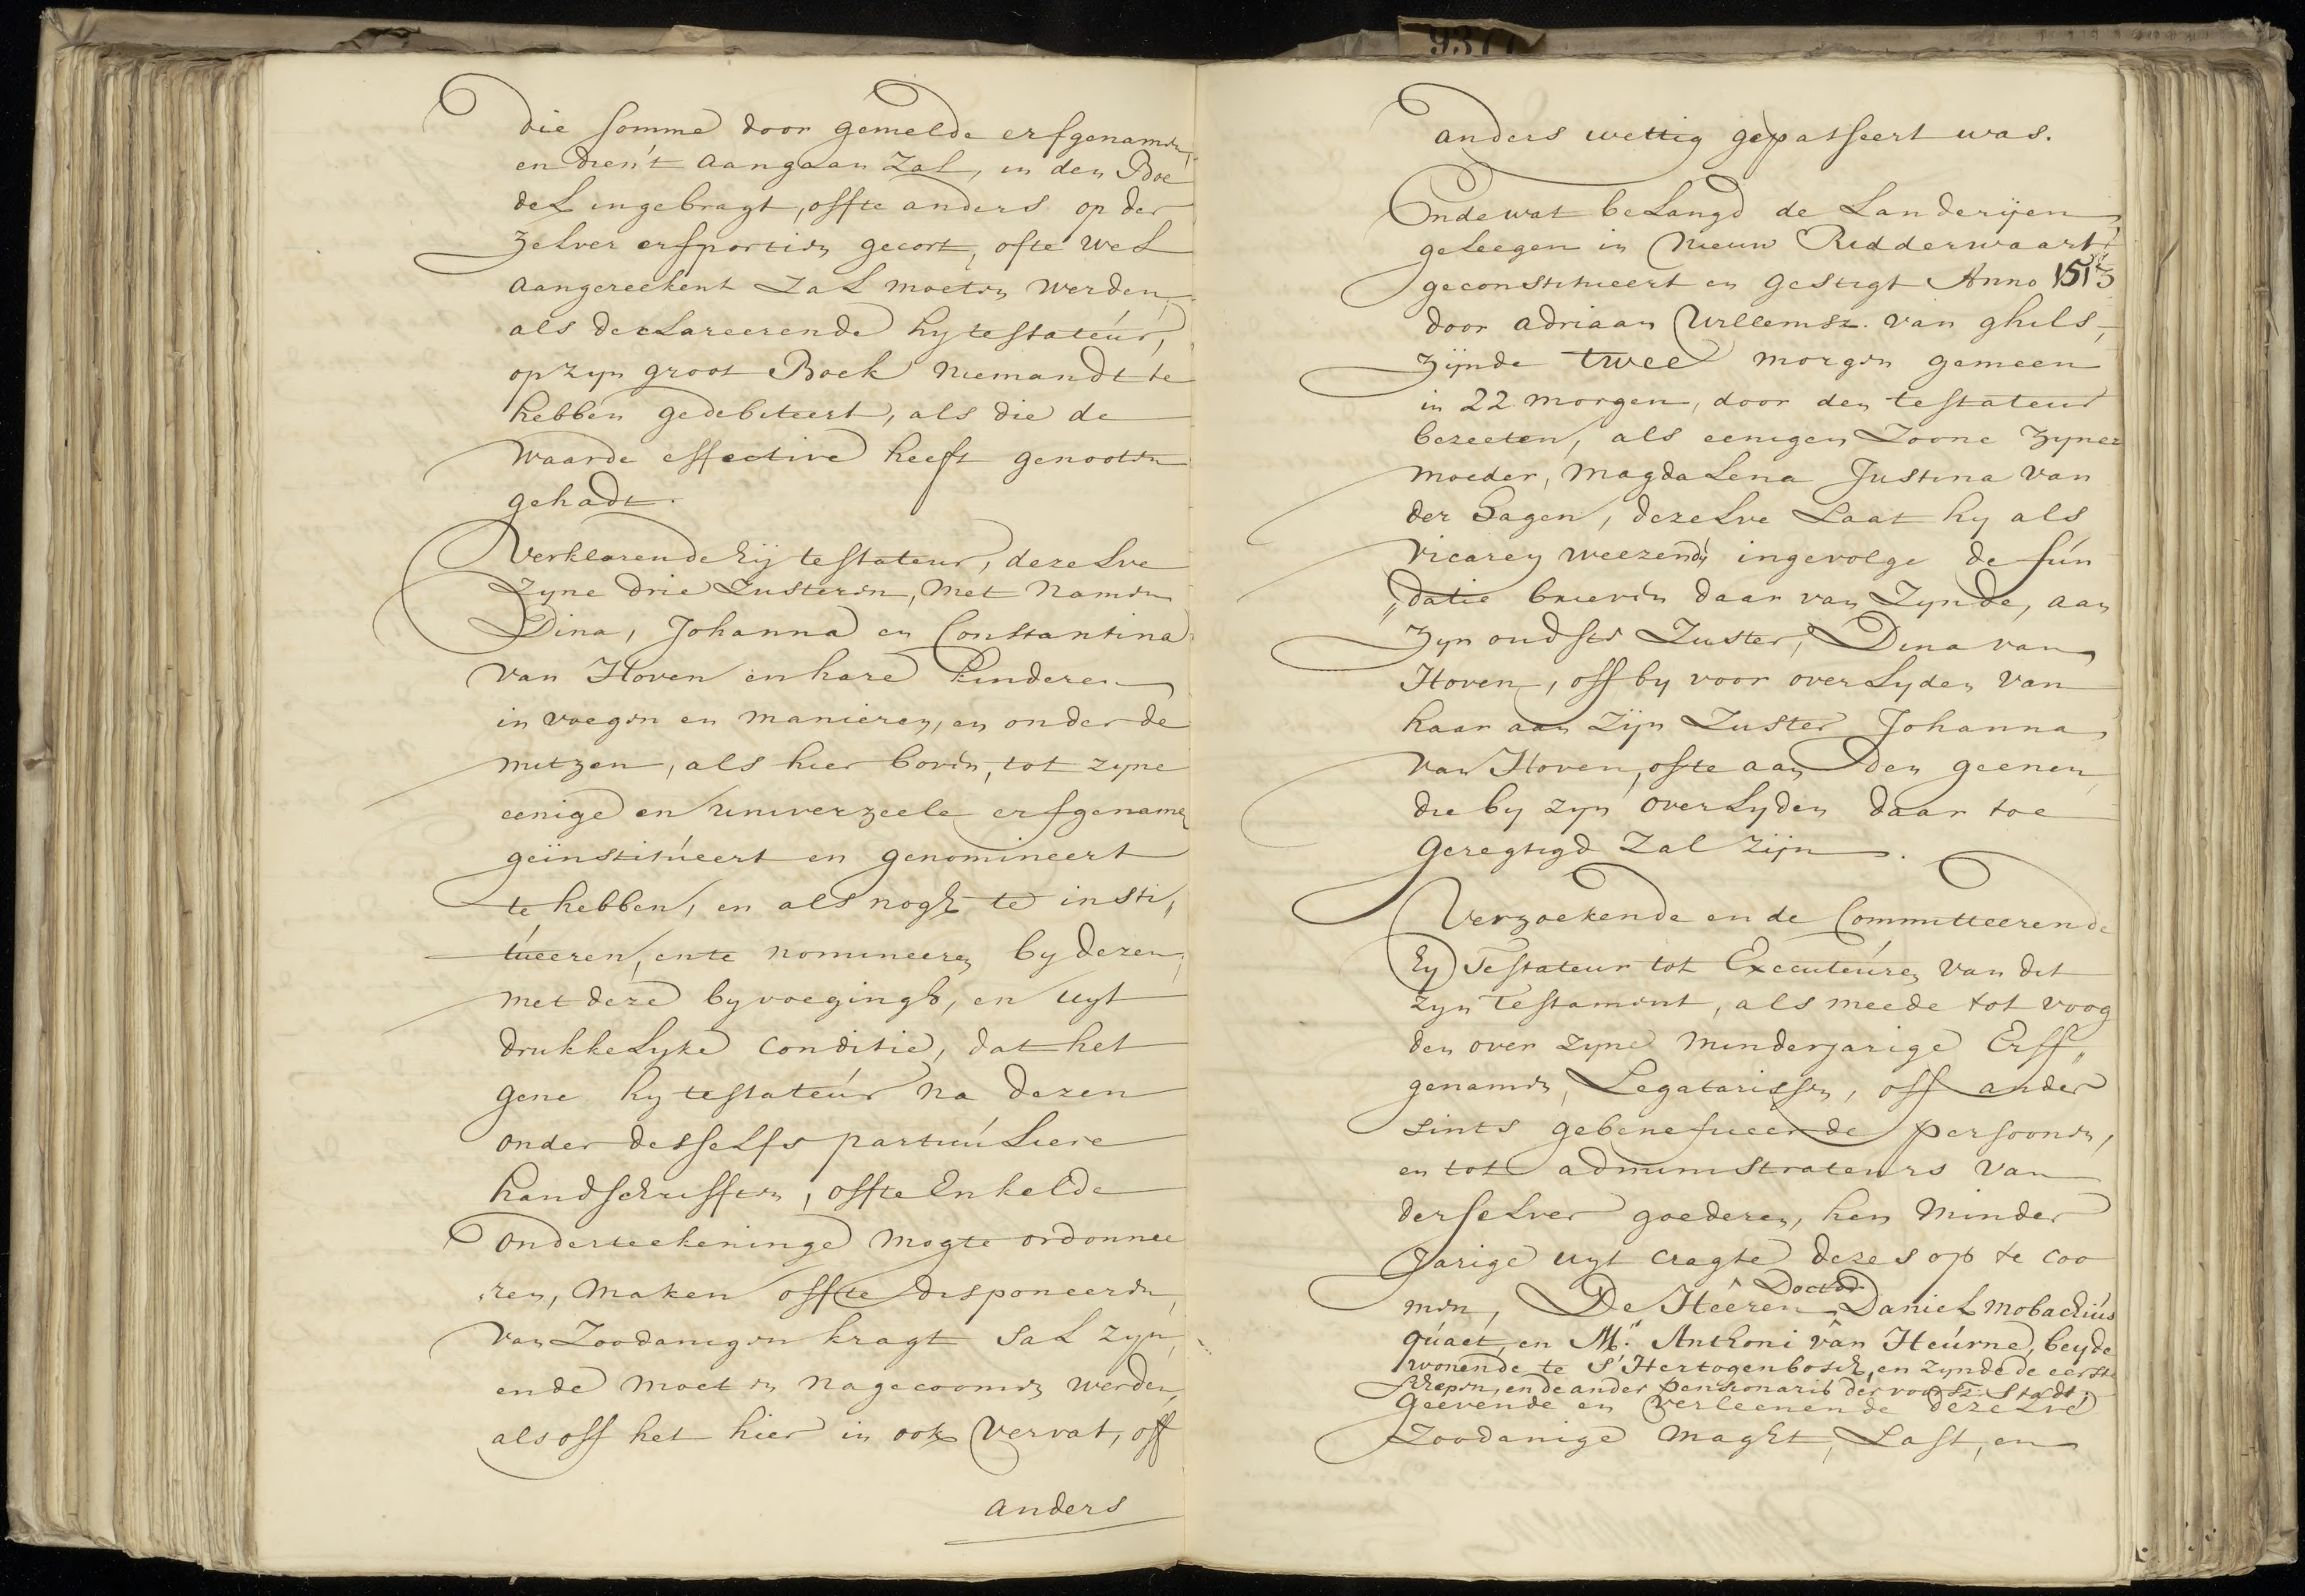 9377
die somme door gemelde erfgenamen,
en dien't aangaan zal, in den Boe
del ingebragt, offte anders op der
zelver erfportien gecort, ofte wel
aangereekent zal moeten werden,
als declareerende hy testateúr,
op zyn groot Boek niemandt te
hebben gedebiteert, als die de
waarde effective heeft genooten
gehadt.
Verklarende hij testateur, dezelve
zyne drie Zusteren, met namen
Dina, Johanna en Constantina
van Hoven en hare kinderen
in voegen en manieren, en onder de
mitzen, als hier boven, tot zyne
eenige en univerzeele erfgenamen
geïnstitúeert en genomineert
te hebben, en als nogh te insti„
túeeren, en te nomineeren by dezen,
met deze byvoegingh, en uyt
drukkelyke conditie, dat het
gene hy testateúr na dezen
onder desselfs particúliere
handschrifften, offte Enkelde
onderteekeninge mogte ordonnee
ren, maken offte disponeeren,
van Zoodanigen kragt sal zyn,
ende moeten nagecoomen werden,
als off het hier in ook vervat, off
anders
anders wettig gepasseert was.
Ende wat belangd de Landerijen
geleegen in Nieuw Ridderwaart
geconstitueert en gestigt Anno 1513
door adriaan Willemsz. van ghils,
zijnde twee morgen gemeen
in 22 morgen, door den testateur
bezeeten, als eenigen Zoone zyner
moeder, Magdalena Justina van
der Hagen, dezelve Laat hy als
vicarey weezende ingevolge de fún
„datie brieven daar van Zynde, aan
zyn oudste Zuster, Dina van
Hoven, off by voor overlyden van
haar aan Zijn Zuster Johanna
van Hoven, ofte aan den geenen
die by zyn overlyden daar toe
geregtigd Zal zijn.
Verzoekende en de Committeerende
hy Testateur tot Executeúren van dit
zyn Testament, als meede tot voog
den over zyne minderjarige Erff„
genamen, Legatarissen, off ander
sints gebeneficeerde persoonen,
en tot administrateurs van
derselver goederen, hen minder
Jarige uyt cragte dezes op te coo
men, De Heeren Doctor Daniel Mobachiús
qúaet, en Mr. Anthoni van Heúrne, beyde
wonende te S'Hertogenbosch, en zynde de eerste
schepen, en de ander pensionaris der voorsz. Stadt;
geevende en verleenende dezelve
zoodanige maght, Last, en